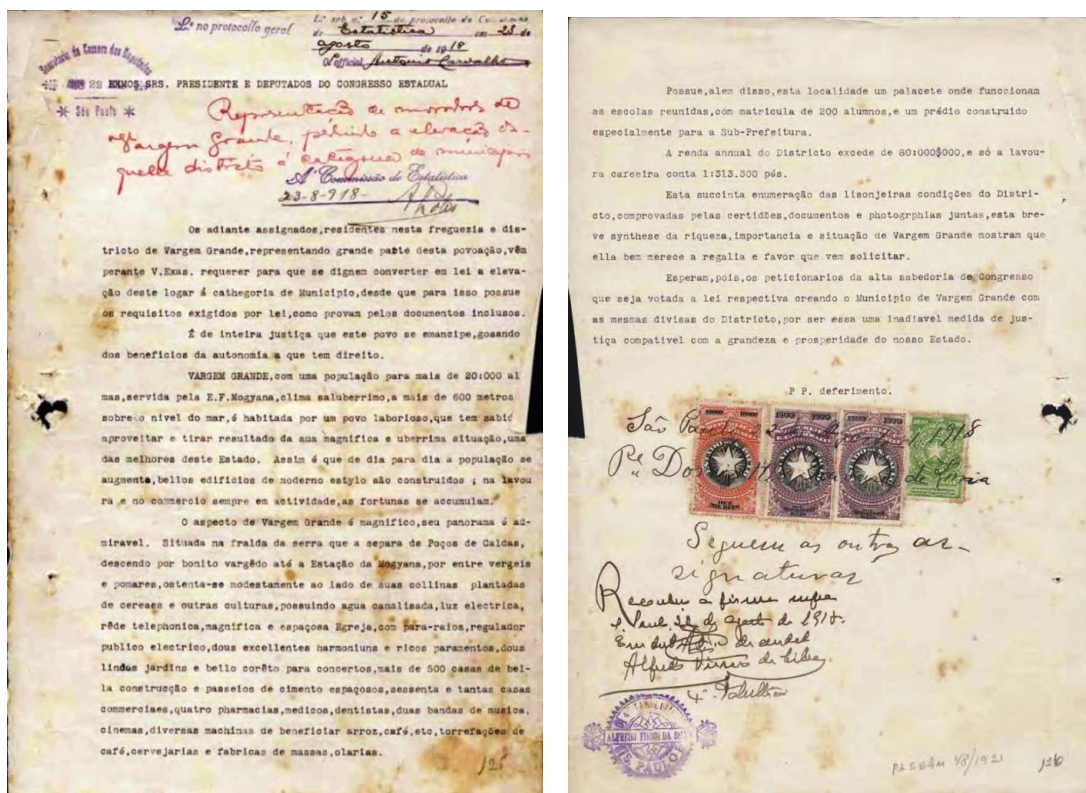 L.º no protocollo geral
L.º sob n.º 15 do protocollo da Commissão
de Estatistica em 23 de
agosto de 1918
O official, Antonio Carvalho
Secretaria da Camara dos Deputados
22
* São Paulo *
EXMOS.SRS. PRESIDENTE E DEPUTADOS DO CONGRESSO ESTADUAL
Representação de moradores de
Vargem Grande, pedindo a elevação da-
quelle districto á categoria de municipio
A' Commissão de Estatistica
23-8-918-
Os adiante assignados,residentes nesta freguezia e dis-
tricto de Vargem Grande,representando grande parte desta povoação,vêm
perante V.Exas. requerer para que se dignem converter em lei a eleva-
ção deste logar á cathegoria de Municipio,desde que para isso possue
os requisitos exigidos por lei,como provam pelos documentos inclusos.
É de inteira justiça que este povo se emancipe,gosando
dos beneficios da autonomia a que tem direito.
VARGEM GRANDE,com uma população para mais de 20:000 al
mas,servida pela E.F.Mogyana,clima saluberrimo,a mais de 600 metros
sobre o nivel do mar,é habitada por um povo laborioso,que tem sabid
aproveitar e tirar resultado da sua magnifica e uberrima situação,uma
das melhores deste Estado. Assim é que de dia para dia a população se
augmenta,bellos edificios de moderno estylo são construidos ; na lavou
ra e no commercio sempre em actividade,as fortunas se accumulam.
O aspecto de Vargem Grande é magnifico,seu panorama é ad-
miravel. Situada na fralda da serra que a separa de Poços de Caldas,
descendo por bonito vargêdo até a Estação da Mogyana,por entre vergeis
e pomares,ostenta-se modestamente ao lado de suas collinas plantadas
de cereaes e outras culturas,possuindo agua canalisada,luz electrica,
rêde telephonica,magnifica e espaçosa Egreja,com para-raios,regulador
publico electrico,dous excellentes harmoniuns e ricos paramentos,dous
lindos jardins e bello corêto para concertos,mais de 500 casas de bel-
la construcção e passeios de cimento espaçosos,sessenta e tantas casas
commerciaes,quatro pharmacias,medicos,dentistas,duas bandas de musica,
cinemas,diversas machinas de beneficiar arroz,café,etc,torrefações de
café,cervejarias e fabricas de massas,olarias.
125
Possue,alem disso,esta localidade um palacete onde funccionam
as escolas reunidas,com matricula de 200 alumnos,e um prédio construido
especialmente para a Sub-Prefeitura.
A renda annual do Districto excede de 80:000$000,e só a lavou-
ra caféeira conta 1:313.500 pés.
Esta succinta enumeração das lisonjeiras condições do Distri-
cto,comprovadas pelas certidões,documentos e photogrphias juntas,esta bre-
ve synthese da riqueza,importancia e situação de Vargem Grande mostram que
ella bem merece a regalia e favor que vem solicitar.
Esperam,pois,os peticionarios da alta sabedoria do Congresso
que seja votada a lei respectiva creando o Municipio de Vargem Grande com
as mesmas divisas do Districto,por ser essa uma inadiavel medida de jus-
tiça compativel com a grandeza e prosperidade do nosso Estado.
P P. deferimento.
São Paulo 1918
Seguem as outras as-
signaturas
Reconheço a firma supra
S. Paulo, 22 de agosto de 1918.
Em da verdade
Alfredo Firmo da Silva
4º Tabellião
ALFREDO FIRMO DA SILVA
S. PAULO
126